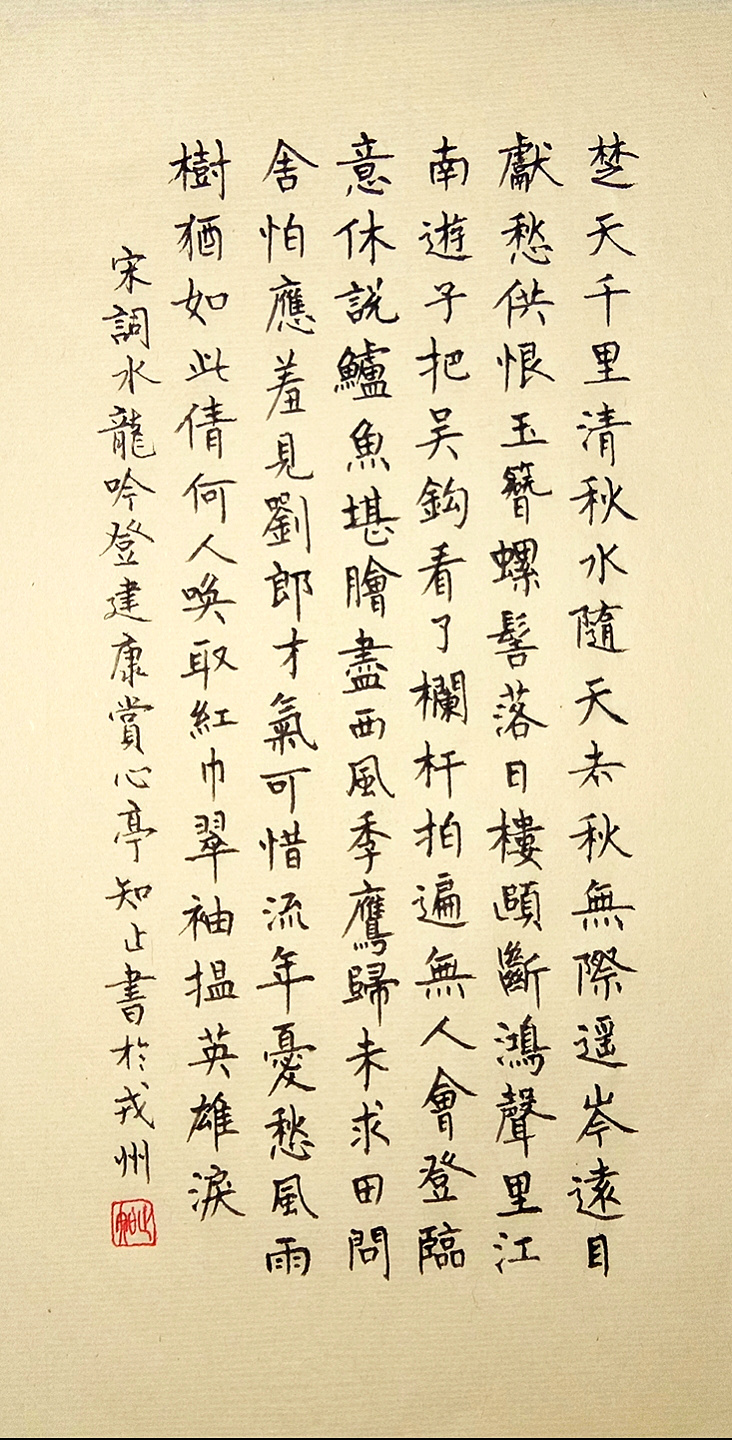 楚天千里清秋水隨天去秋無際遥岑遠目
獻愁供恨玉簪螺髻落日樓頭斷鴻聲里江
南遊子把吴鈎看了欄杆拍遍無人會登臨
意休說鱸魚堪膾盡西風季鷹歸未求田問
舍怕應羞見劉郎才氣可惜流年憂愁風雨
樹猶如此倩何人喚取紅巾翠袖揾英雄淚
宋詞水龍吟登建康賞心亭知止書於戎州
知止